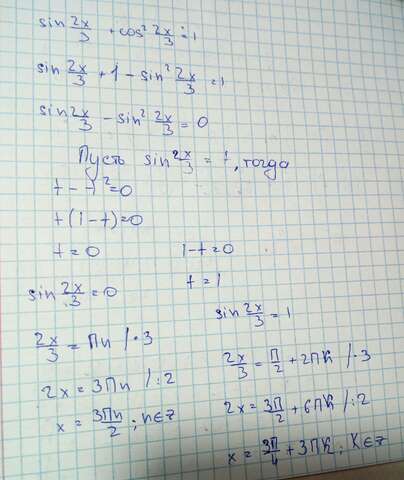 sin 2x/3 + cos² 2x/3 = 1
sin 2x/3 + 1 - sin² 2x/3 = 1
sin 2x/3 - sin² 2x/3 = 0
Пусть sin 2x/3 = t, тогда
t - t² = 0
t(1-t)=0
t = 0
1-t=0
t = 1
sin 2x/3 = 0
sin 2x/3 = 1
2x/3 = Πn /·3
2x/3 = Π/2 + 2ΠK /·3
2x = 3Πn /:2
2x = 3Π/2 + 6ΠK /:2
x = 3Πn/2 ; n∈Z
x = 3Π/4 + 3ΠK ; K∈Z